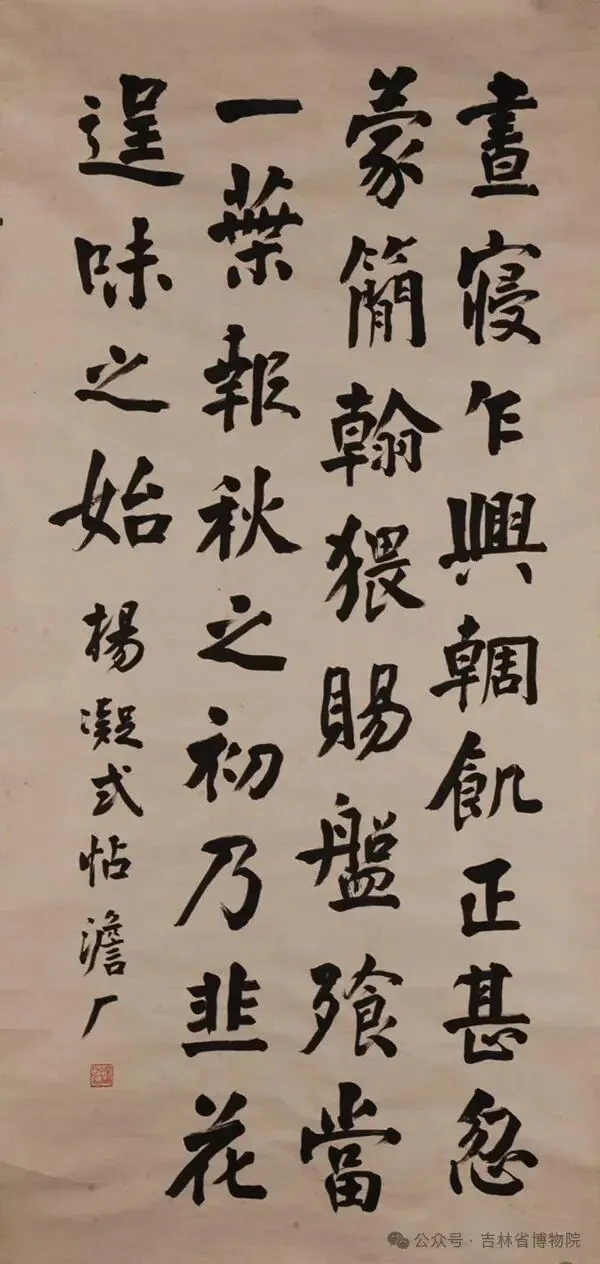 晝寢乍興輖飢正甚忽
蒙簡翰猥賜盤飱當
一葉報秋之初乃韭花
逞味之始
楊凝式帖 澹厂
公众号·吉林省博物院